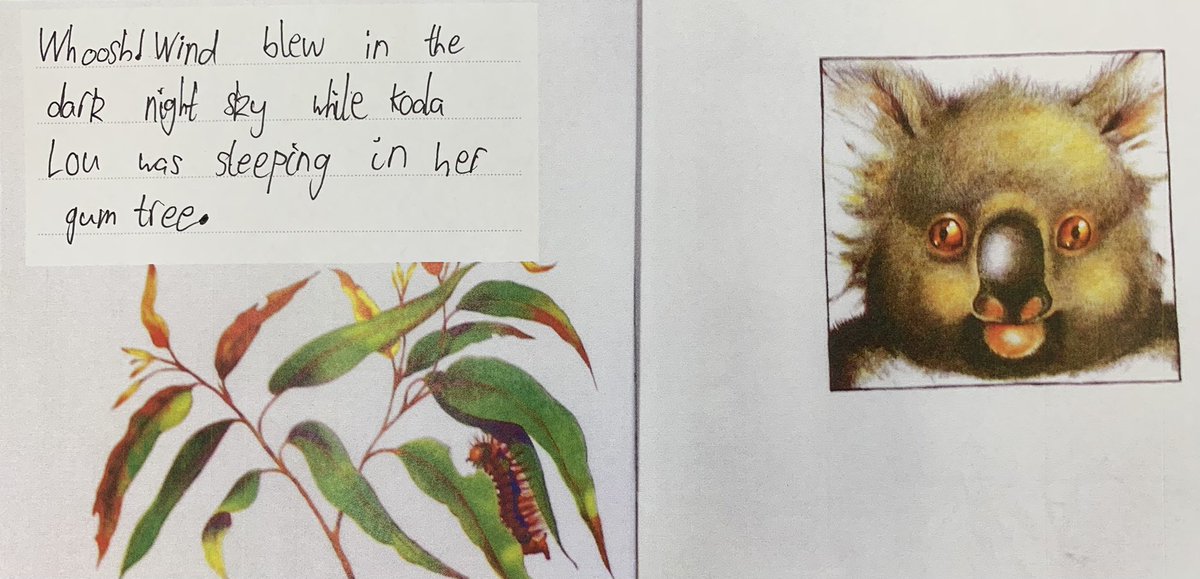 Whoosh! Wind blew in the
dark night sky while koda
Lou was sleeping in her
gum tree.